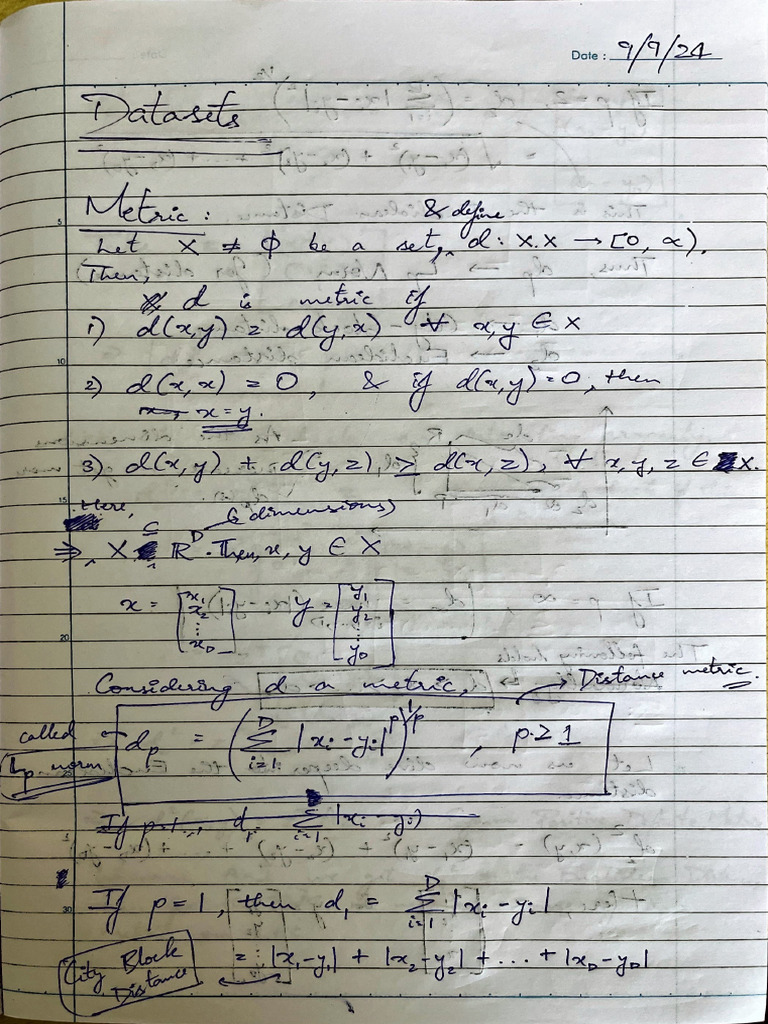 Date : 9/9/24
Datasets
Metric :
Let X ≠ ϕ be a set, & define d : X.X → [0, ∝).
Then,
d is metric if
1) d(x,y) = d(y,x) ∀ x,y ∈ X
2) d(x,x) = 0, & if d(x,y) = 0, then
x = y.
3) d(x,y) + d(y,z) ≥ d(x,z), ∀ x,y,z ∈ X.
Here,
⇒ X ⊆ ℝ^D (dimensions). Then, x, y ∈ X
x = [x₁ x₂ ⋮ x_D] y = [y₁ y₂ ⋮ y_D]
Considering d a metric, → Distance metric.
called Lp norm ← d_p = (∑_{i=1}^{D} |x_i - y_i|^p)^{1/p} , p ≥ 1
If p=1, d_p ∑_{i=1} |x_i - y_i|
If p = 1, then d₁ = ∑_{i=1}^{D} |x_i - y_i|
= |x₁-y₁| + |x₂-y₂| + ... + |x_D-y_D|
City Block
Distance
5
10
15
20
25
30